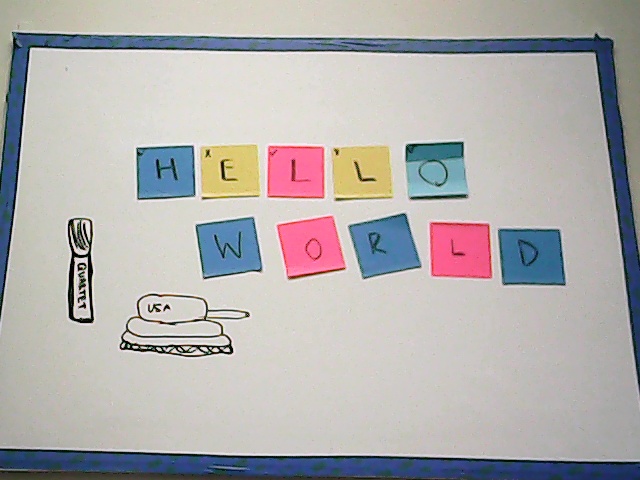 HELLO
WORLD
QUARTET
USA